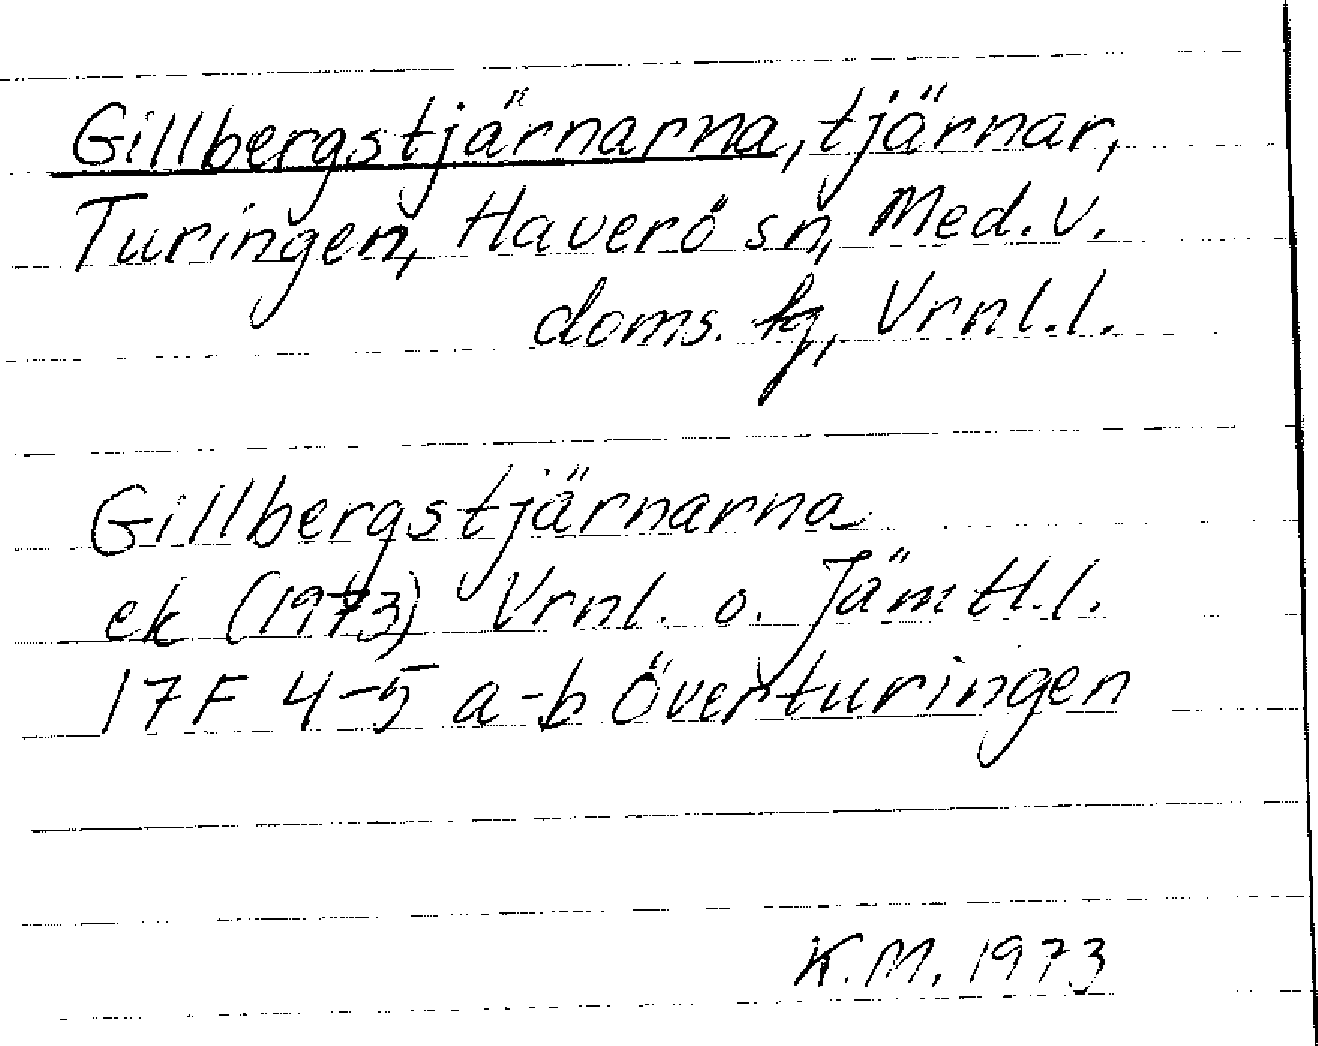 Gillbergstjärnarna, tjärnar,
Turingen, Haverö sn, Med. v.
doms. fq, Vrnl.l.
Gillbergstjärnarna
ek (1973) Vrnl. o. Jämtl.l.
17F 4-5 a-b Överturingen
K.M. 1973